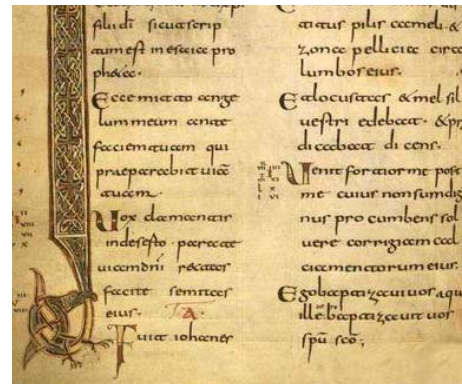 filii di sicut scrip
tum est in esaia pro
pheta.
Ecce mitto ange
lum meum ante
faciem tuam qui
praeparabit uia
tuam.
Uox clamantis
in deserto parate
uiam dni rectas
facite semitas
eius.
Fuit iohannes
catus pilis cameli &
zona pellicia circa
lumbos eius.
Et locustas & mel sil
uestri edebat. & pr
dicabat dicens.
Uenit fortior me post
me cuius non sum dig
nus pro cumbens sol
uere corrigiam cal
ciamentorum eius.
Ego baptizaui uos aqu
ille baptizauit uos
spu sco;